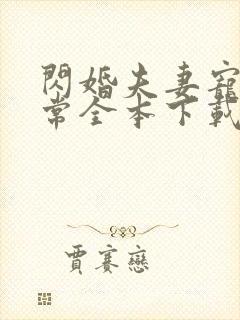 閃婚夫妻寵
常全本下載
賈賽戀